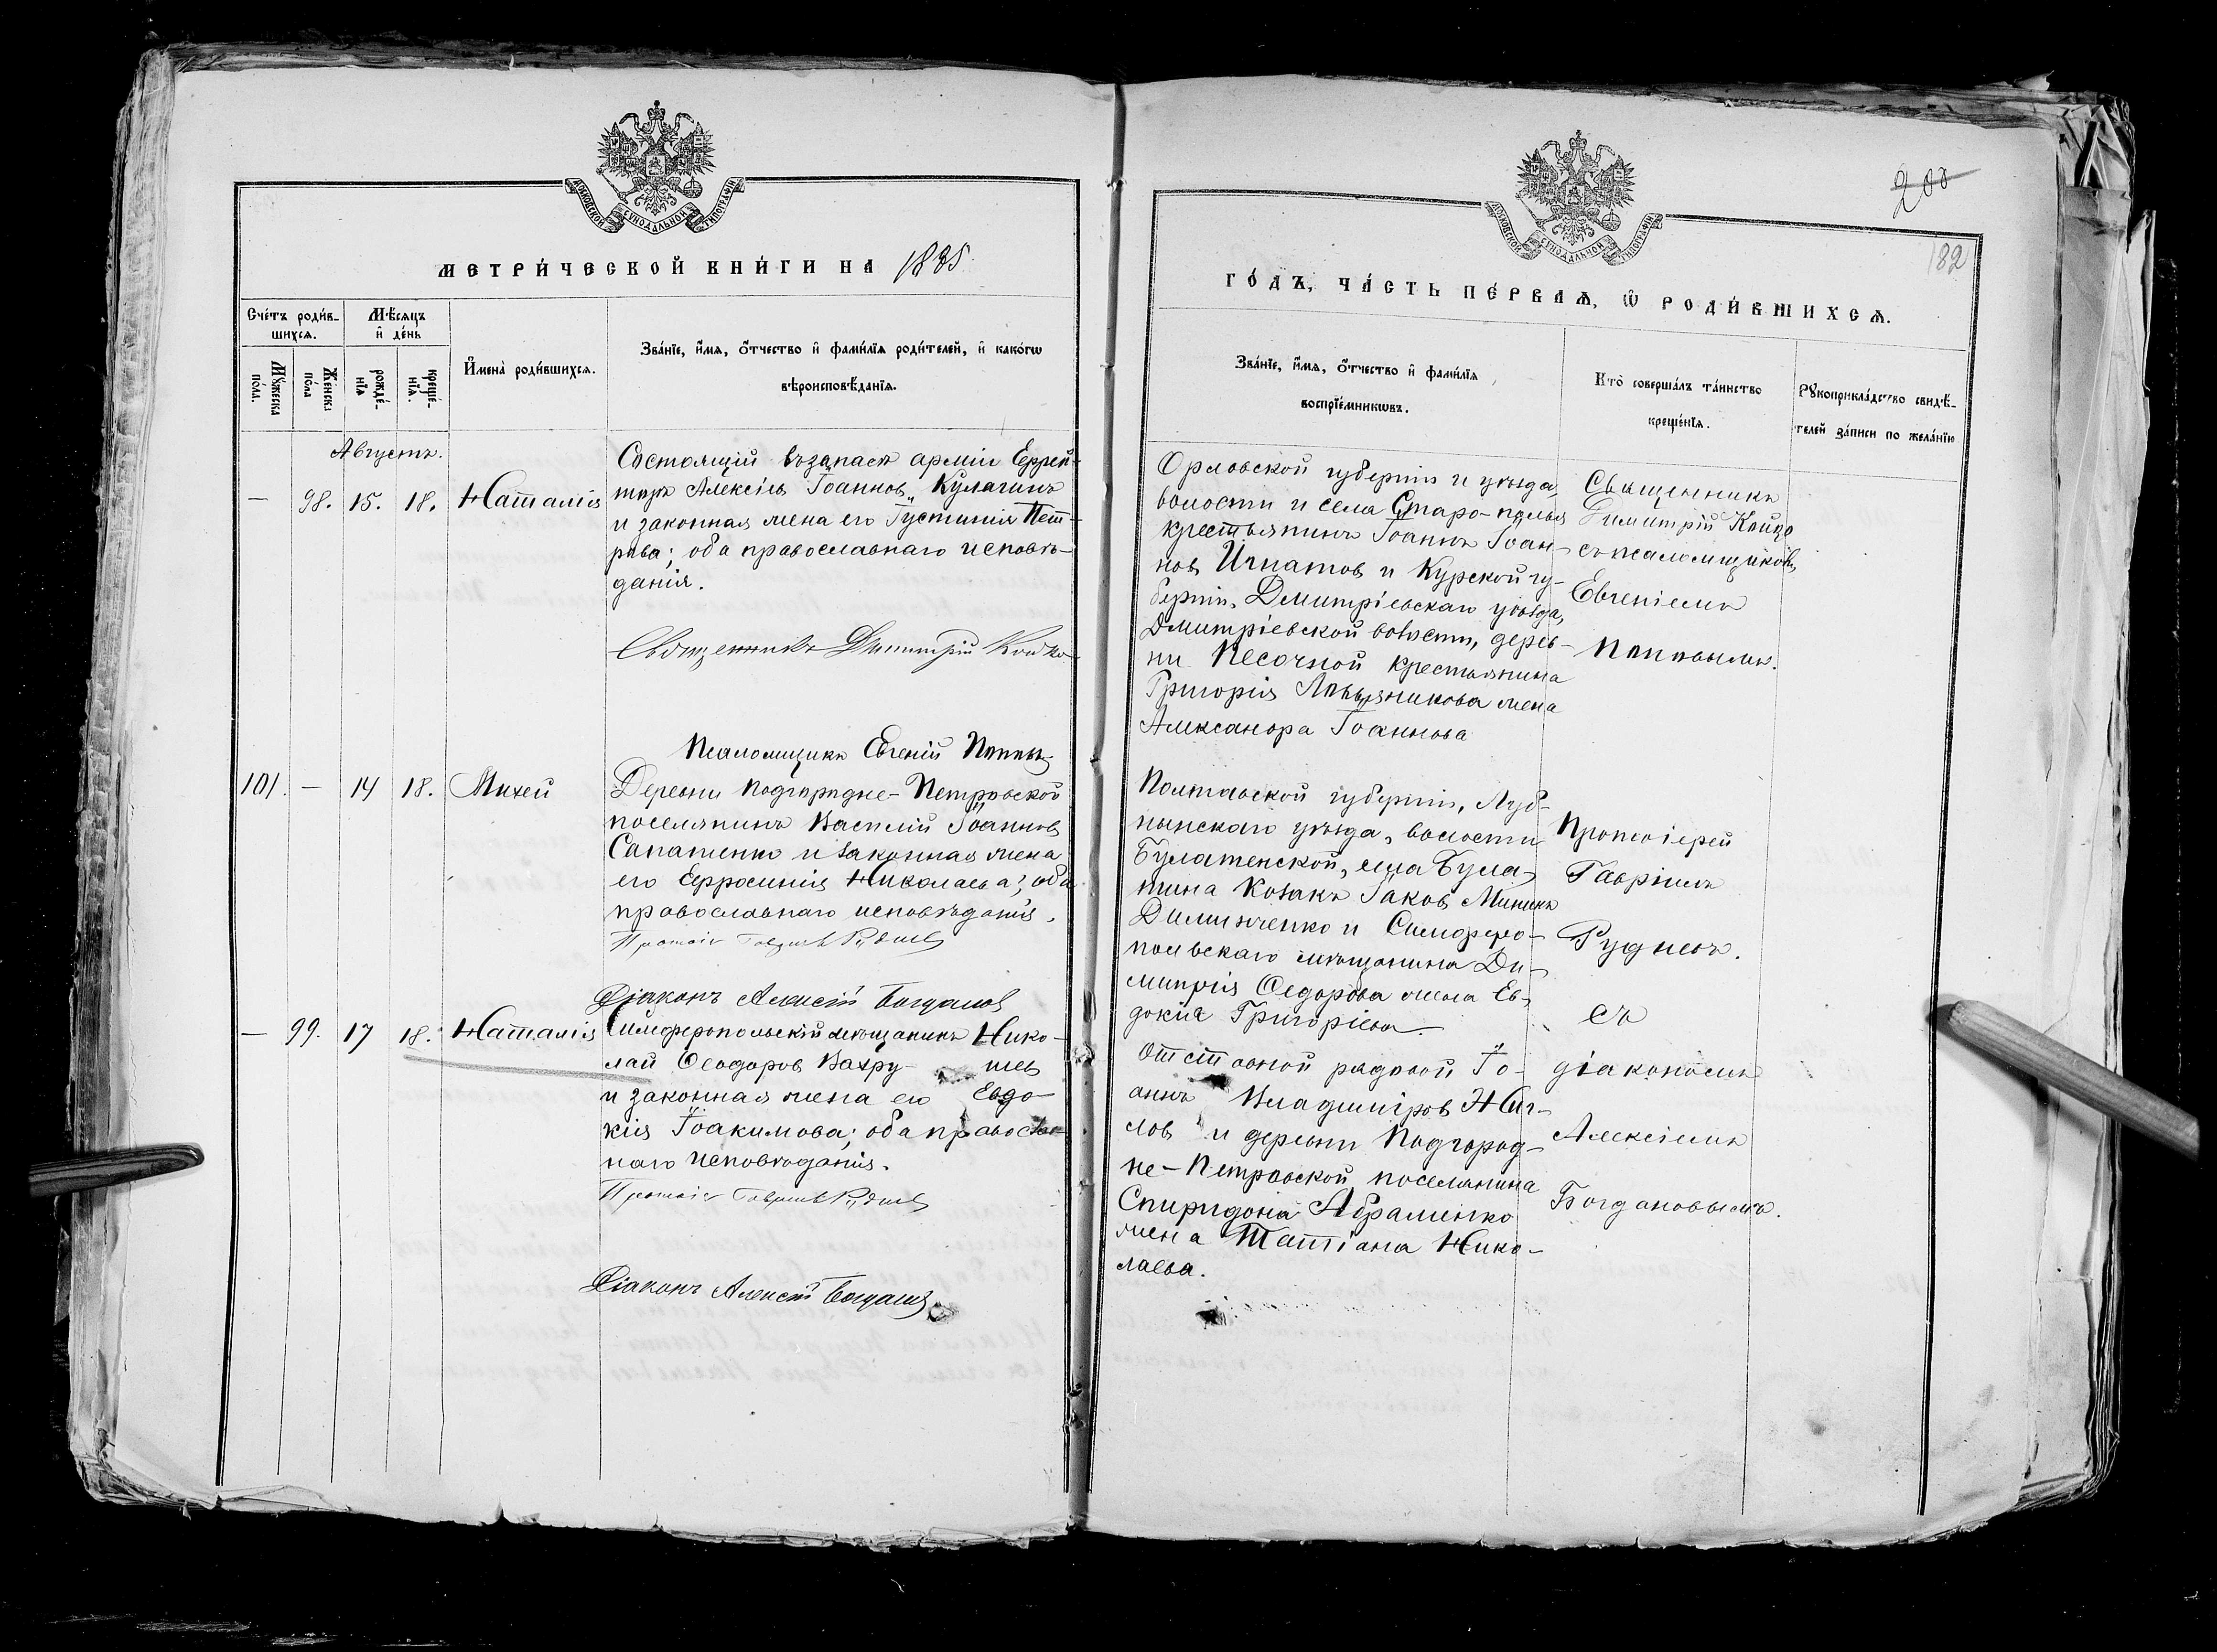 МОСКОВСКОЙ СѴНОДАЛЬНОЙ ТИПОГРАФІИ
МЕТРИ́ЧЕСКОЙ КНИ́ГИ НА 1885
Сче́тъ роди́в-
шихсѧ.
Мѣ́сѧцъ
и҆ де́нь
Мꙋ́жеска
по́ла.
Же́нска
по́ла
рожде́-
нїѧ
креще́-
нїѧ.
И҆мена̀ роди́вшихсѧ.
Зва́нїе, и҆́мѧ, ѻ҆́тчество и҆ фами́лїѧ роди́телей, и҆ како́гѡ
вѣроисповѣ́данїѧ.
Августъ.
— 98. 15. 18. Наталія
Состоящій въ запасѣ арміи Ефрей-
торъ Алексѣй Іоанновъ Кулагинъ
и законная жена его Іустинія Пет-
рова; оба православнаго исповѣ-
данія.
Священникъ Димитрій Койко
Псаломщикъ Евгеній Поповъ
101. — 14 18. Михей
Деревни Подгородне-Петровской
поселянинъ Василій Іоанновъ
Сапатенко и законная жена
его Евфросинія Николаева; оба
православнаго исповѣданія.
Протоіе Гавріилъ Рудневъ
Діаконъ Алексій Богдановъ
— 99. 17 18. Наталія
Симферопольскій мѣщанинъ Нико-
лай Ѳеодоровъ Вахру- шевъ
и законная жена его Евдо-
кія Іоакимова; оба православ-
наго исповѣданія.
Протоіе Гавріилъ Рудневъ
Діаконъ Алексій Богдановъ
200
182
МОСКОВСКОЙ СѴНОДАЛЬНОЙ ТИПОГРАФІИ
ГО́ДЪ, ЧА́СТЬ ПЕ́РВАѦ, Ѡ҆ РОДИ́ВШИХСѦ.
Зва́нїе, и҆́мѧ, ѻ҆́тчество и҆ фами́лїѧ
воспрїе́мникѡвъ.
Кто̀ соверша́лъ та́инство
креще́нїѧ.
Рꙋкоприкла́дство свидѣ́-
телей за́писи по жела́нїю
Орловской губерніи и уѣзда,
волости и села Старо-полья
крестьянинъ Іоаннъ Іоан-
новъ Игнатовъ и Курской гу-
берніи, Дмитріевскаго уѣзда,
Дмитріевской волости, дерев-
ни Песочной крестьянина
Григорія жена
Александра Іоаннова
Священникъ
Димитрій Койко
съ псаломщикомъ
Евгеніемъ
Поповымъ.
Полтавской губерніи, Луб-
нынскаго уѣзда, волости
Булатенской, села Була-
тина Козакъ Іаковъ Мининъ
и Симферо-
польскаго мѣщанина Ди-
митрія Ѳедорова жена Ев-
докія Григоріева
Протоіерей
Гавріилъ
Рудневъ.
съ
діакономъ
Алексіемъ
Богдановымъ.
Отставной рядовой Іо-
аннъ Владиміровъ
и деревни Подгород-
не-Петровской поселянина
Спиридона Абраменко
жена Татіана Нико-
лаева.